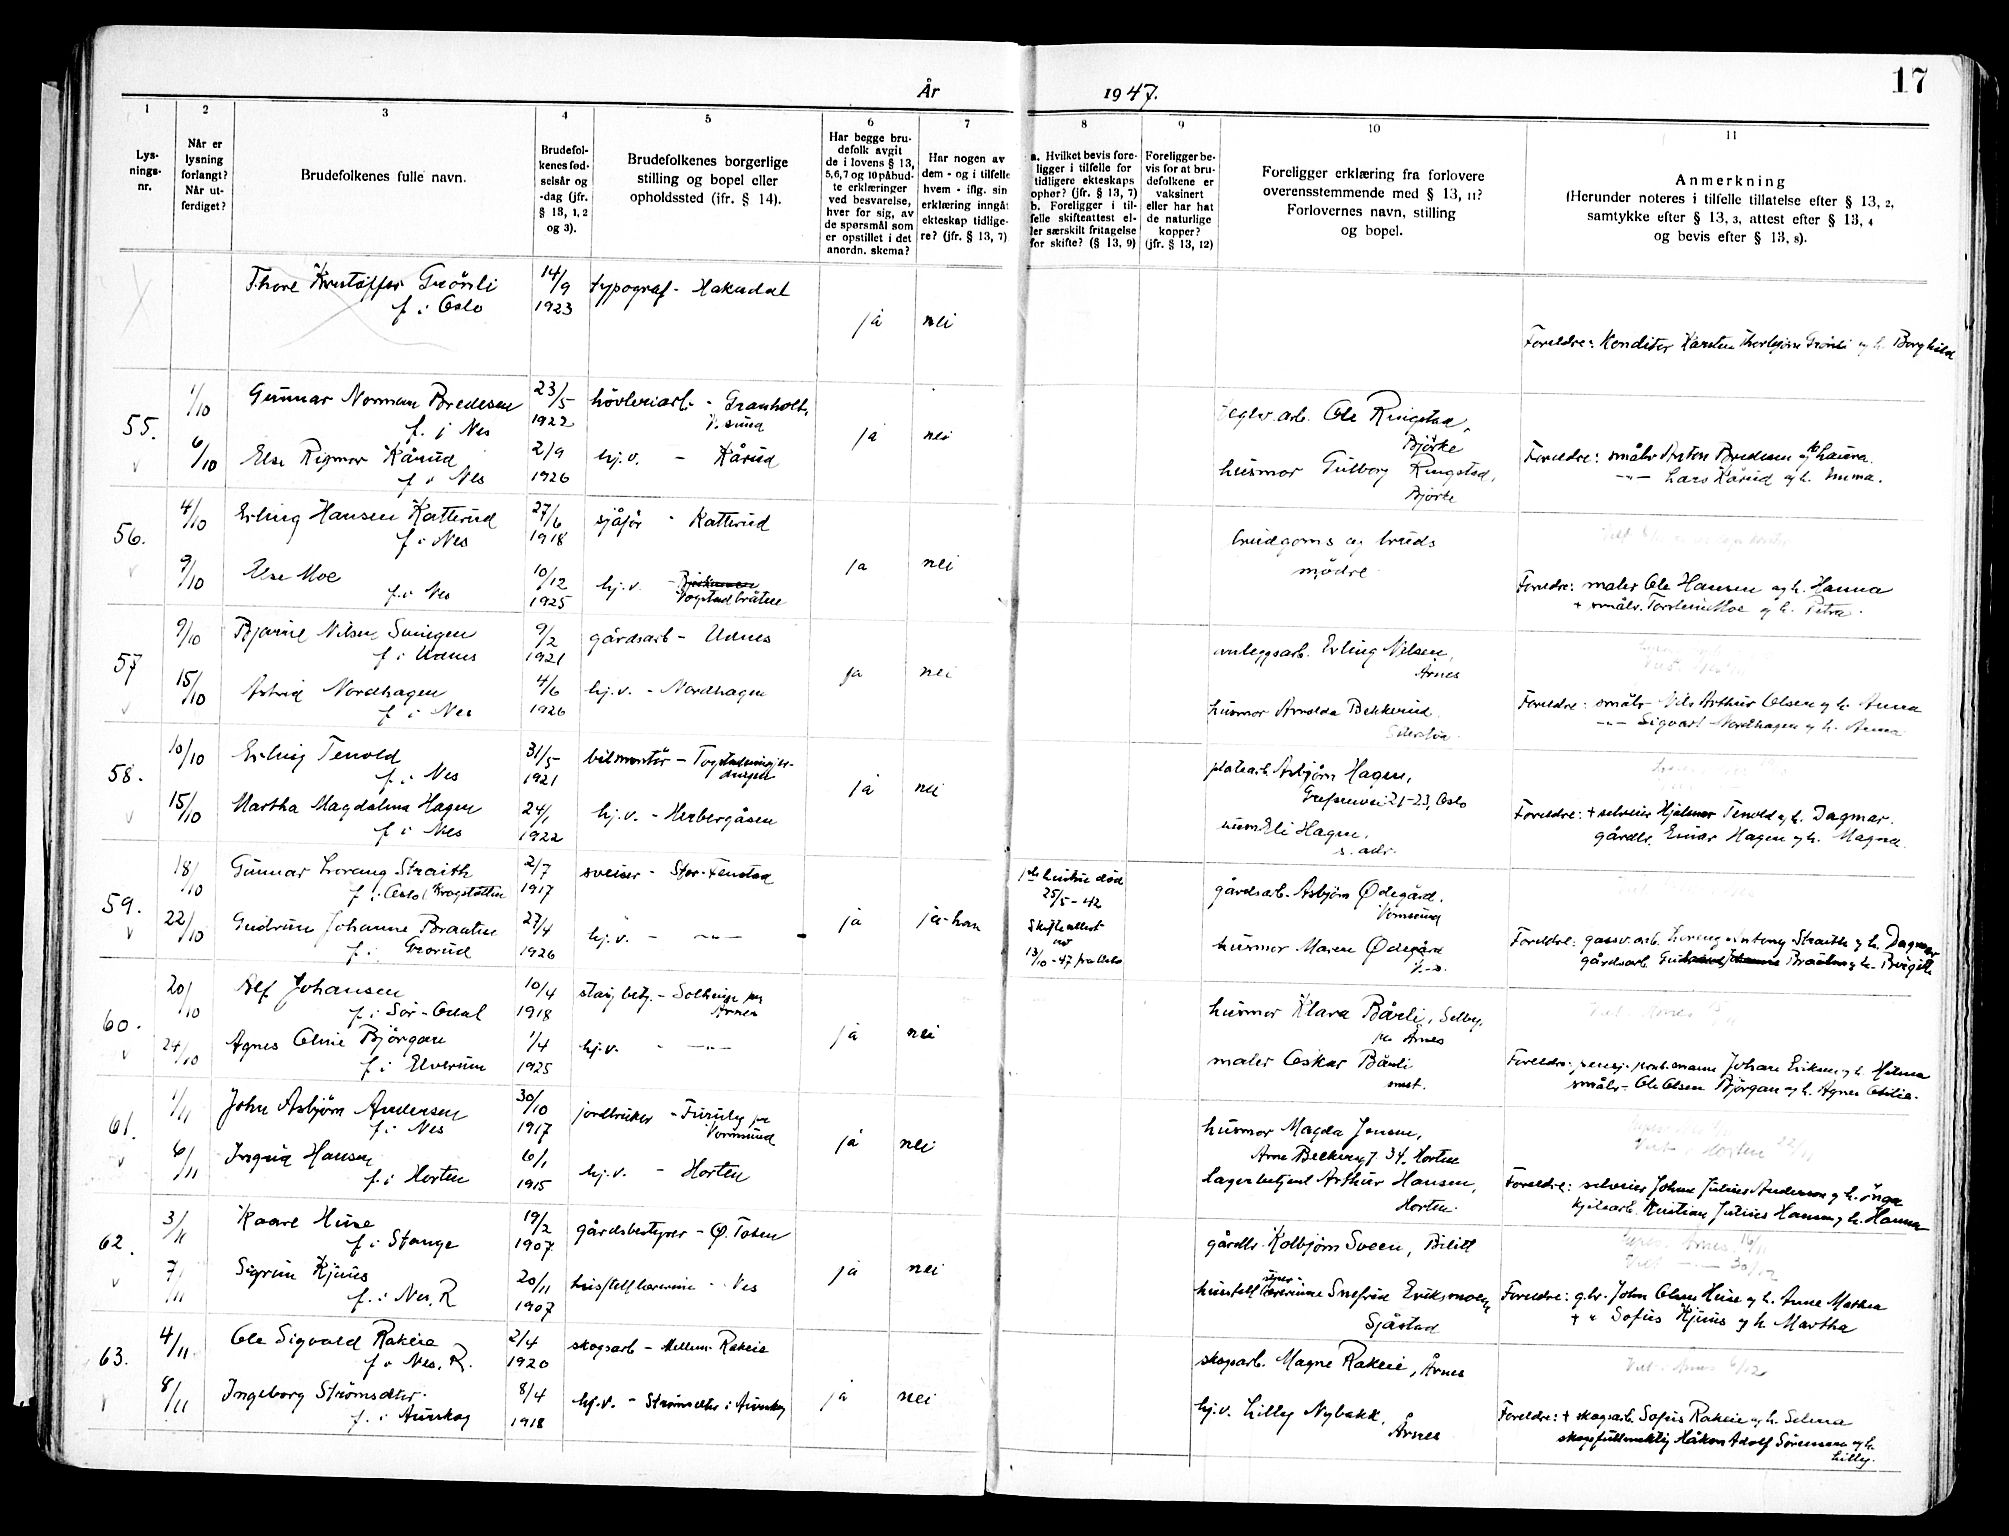 År 1947.
17
1 2 3 4 5 6 7 8 9 10 11
Lys-
nings-
nr.
Når er
lysning
forlangt?
Når ut-
ferdiget?
Brudefolkenes fulle navn.
Brudefol-
kenes fød-
selsår og
-dag (jfr.
§ 13, 1, 2
og 3).
Brudefolkenes borgerlige
stilling og bopel eller
opholdssted (ifr. § 14).
Har begge bru-
defolk avgit
de i lovens § 13,
5,6,7 og 10 påbud-
te erklæringer
ved besvarelse,
hver for sig, av
de spørsmål som
er opstillet i det
anordn. skema?
Har nogen av
dem - og i tilfelle
hvem - iflg. sin
erklæring inngåt
ekteskap tidlige-
re? (jfr. § 13, 7)
a. Hvilket bevis fore-
ligger i tilfelle for
tidligere ekteskaps
ophør? (jfr. § 13, 7)
b. Foreligger i til-
felle skifteattest el-
ler særskilt fritagelse
for skifte? (§ 13, 9)
Foreligger be-
vis for at bru-
defolkene er
vaksinert
eller har hat
de naturlige
kopper?
(jfr. § 13, 12)
Foreligger erklæring fra forlovere
overensstemmende med § 13, 11?
Forlovernes navn, stilling
og bopel.
Anmerkning
(Herunder noteres i tilfelle tillatelse efter § 13, 2,
samtykke efter § 13, 3, attest efter § 13, 4
og bevis efter § 13, 8).
Thore Kristoffer Grönli 14/9 typograf - Hakadal
f. i Oslo 1923
ja nei
Foreldre: Konditor Karsten Thorbjørn Grönli og h. Borghild
55. 1/10 Gunnar Norman Bredesen 23/5 hövleriarb. - Granholt,
f. i Nes 1922 V. sund
ja nei
arb. Ole Ringstad,
Bjørke
6/10 Else Rigmor Kårud 2/9 hj.v. - Kårud
f. i Nes 1926
husmor Gulborg Ringstad,
Bjørke
Foreldre: småbr. Bredesen og h. Laura.
-"- Lars Kårud og h. Emma.
56. 4/10 Erling Hansen Katterud 27/6 sjåför - Katterud
f. i Nes 1918
ja nei
brudgoms og bruds
mødre
9/10 Else Moe 10/12 hj.v. -
f. i Nes 1925 Vogstadbråten
Foreldre: maler Ole Hansen og h. Hanna
+ småbr. Torstein Moe og h. Petra.
57 9/10 Bjarne Nilsen Svingen 9/2 gårdsarb - Udnes
f. i Udnes 1921
ja nei
anleggsarb. Erling Nilsen,
Årnes
15/10 Astrid Nordhagen 4/6 hj.v. - Nordhagen
f. i Nes 1926
husmor Arnolda Bekkerud
Foreldre: småbr. Nils Arthur Olsen og h. Anna
-"- Sigvart Nordhagen og h. Anna
58. 10/10 Erling Tenold 31/5 bilmontör -
f. i Nes 1921
ja nei
platearb. Asbjørn Hagen,
Grefsenvei 21-23, Oslo
15/10 Martha Magdalena Hagen 24/1 hj.v. - Herbergåsen
f. i Nes 1922
husm Eli Hagen,
s. adr.
Foreldre: + selveier Hjalmar Tenold og h. Dagmar.
gårdbr. Einar Hagen og h. Magna.
59. 18/10 Gunnar Lorang Straith 2/7 sveiser - Stor-Fenstad
f. i Oslo (Krogstötten 1917
ja ja-han
1ste hustru död
25/5 - 42
Skifteattest
av
13/10 - 47 fra Oslo
gårdsarb. Asbjørn Ødegård.
Vormsund
22/10 Gudrun Johanne Braaten 27/4 hj.v. - -"-
f. i Grorud 1926
husmor Maren Ødegård
Foreldre: gassv.arb. Lorang Antony Straith og h. Dagmar
gårdsarb. Braaten og h. Birgit.
60. 20/10 Alf Johansen 10/4 - Solhaug pr
f. i Sør-Odal 1918 Årnes
ja nei
husmor Klara Bårli, Selby,
pr Årnes
24/10 Agnes Oline Bjørgan 1/4 hj.v. - -"-
f. i Elverum 1925
maler Oskar Bårli
smst.
Foreldre: pensj. Johan Eriksen og h. Helma
småbr. Ole Olsen Bjørgan og h. Agnes Otilie.
61. 1/11 John Asbjørn Andersen 30/10 jordbruker - Furuly pr
f. i Nes 1917 Vormsund
ja nei
husmor Magda Jensen,
Arne Bekkevey 34, Horten
Viet i Horten 22/11
6/11 Ingrid Hansen 6/1 hj.v. - Horten
f. i Horten 1915
Lagerbetjent Arthur Hansen,
Horten.
Foreldre: selveier Johan Julius Andersen og h. Inga
kjelearb. Kristian Julius Hansen og h. Hanna
62. 3/11 Kaare Huse 19/2 gårdsbestyrer - Ø. Toten
f. i Stange 1907
ja nei
gårdbr. Kolbjørn Sveen, Bilitt
Årnes 16/11
Viet -"- 30/12
7/11 Sigrun Kjuus 20/11 husstellærerinne - Nes
f. i Nes, R 1907
husstellærerinne Snefrid Eriksmoen,
Sjåstad
Foreldre: g.br. John Olsen Huse og h. Anne Mathea
+ " Sofus Kjuus og h. Martha
63. 4/11 Ole Sigvald Rakeie 2/4 skogsarb - Mellem-Rakeie
f. i Nes, R. 1920
ja nei
skogsarb. Magne Rakeie, Årnes
Viet i Årnes 6/12
8/11 Ingeborg Strømsæter. 8/4 hj.v. - Strømsæter i Aurskog
f. i Aurskog 1918
hj.v. Lilly Nybakk,
Årnes
Foreldre: + skogsarb. Sofus Rakeie og h. Selma
skogsfullmektig Håkon Adolf Sørensen og h.
Lilly.